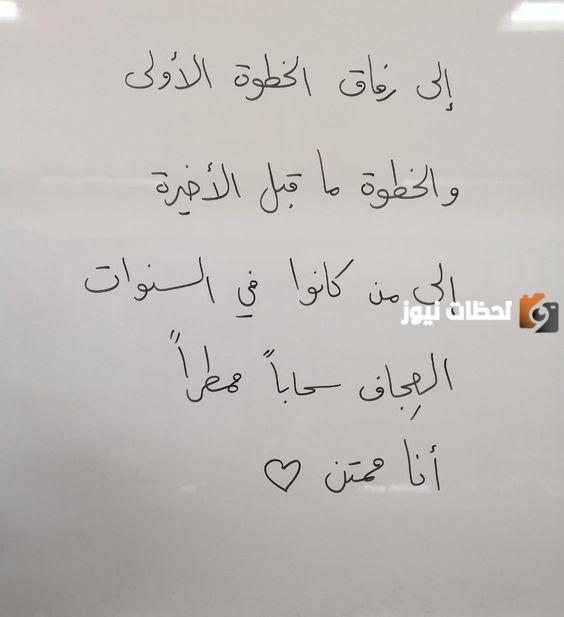 إلى رفاق الخطوة الأولى
والخطوة ما قبل الأخيرة
إلى من كانوا في السنوات
العِجاف سحاباً ممطراً
أنا ممتن ♡
لحظات نيوز